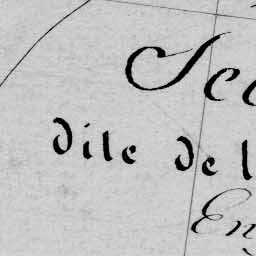 Sec
dite de l
En